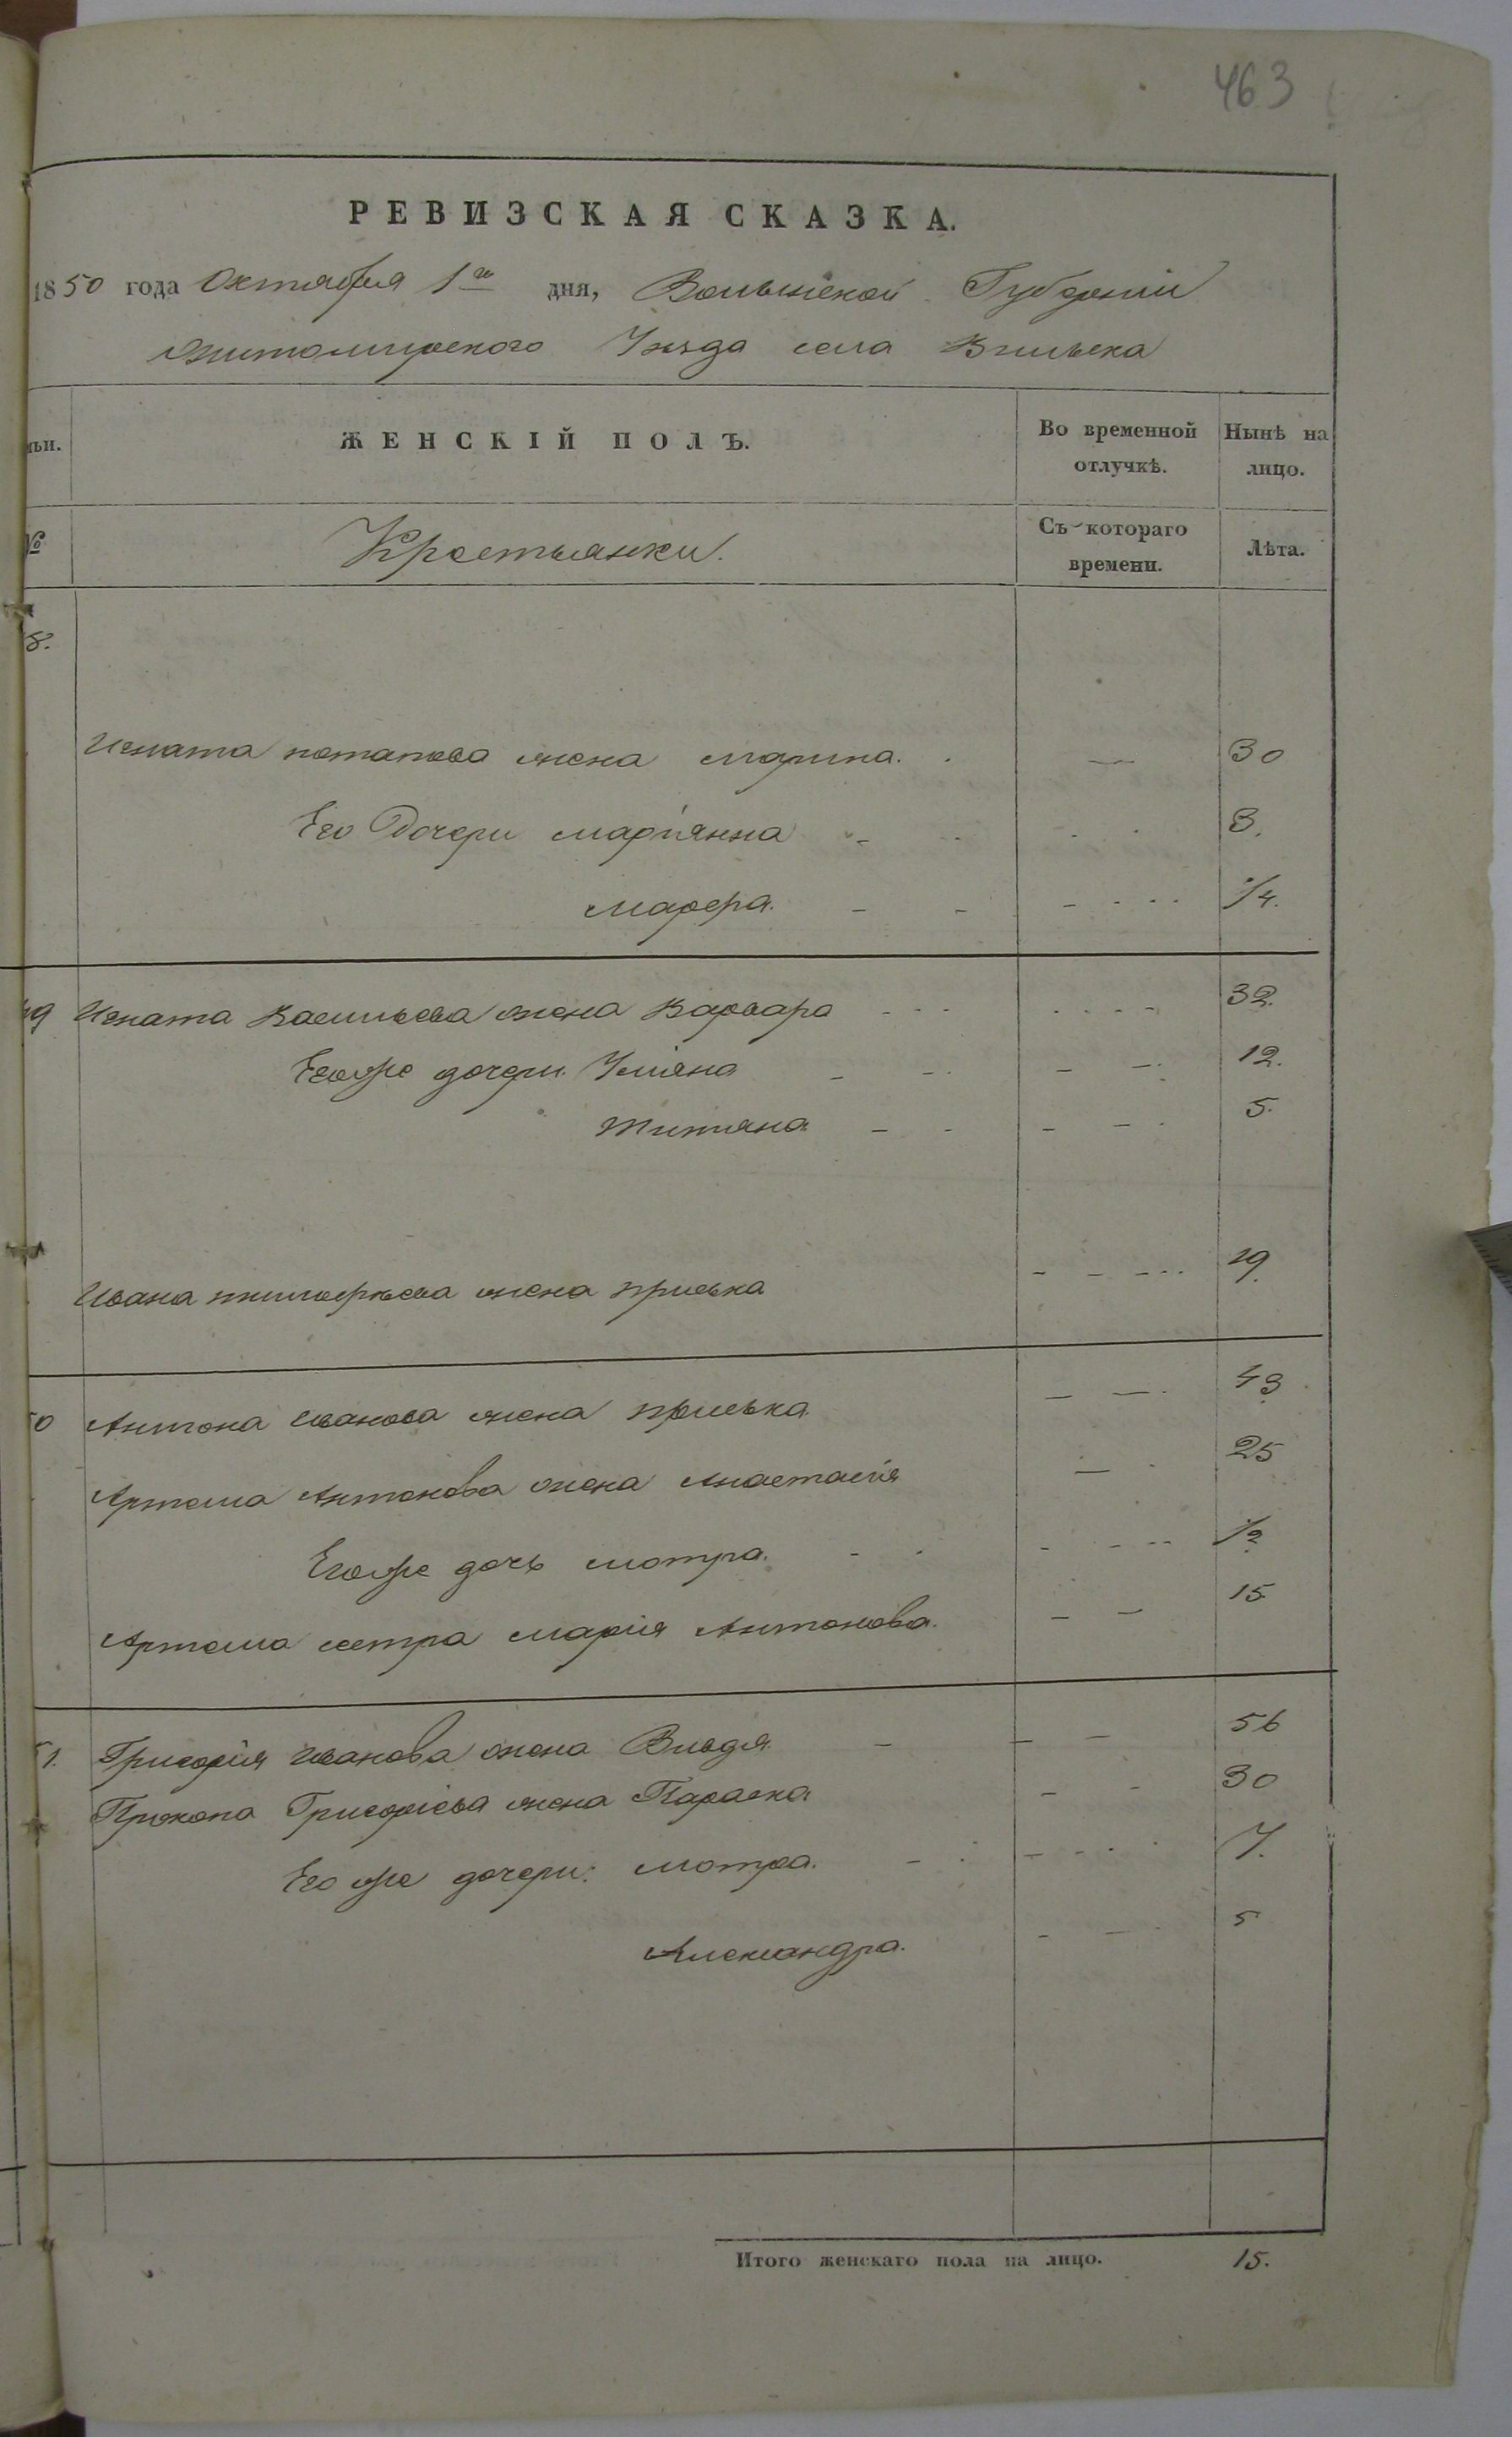 463
РЕВИЗСКАЯ СКАЗКА.
1850 года Октября 1го дня, Волынской Губерніи
Житомирского Уезда села Вильска
ЖЕНСКІЙ ПОЛЪ.
Во временной отлучкѣ.
Нынѣ на лицо.
№
Крестьянки.
Съ котораго времени.
Лѣта.
8.
Игната потапова жена марина. 30
Его Дочери маріянна 8.
марфа. 1/4.
49 Игната Васильева жена Варвара 32.
Егоже дочери Уліяна 12.
Титяна 5.
Ивана жена приська 19.
50 Антона иванова жена приська 43
Артема Антонова жена Анастасія 25
Егоже дочь мотра. 1/2
Артема сестра марія Антонова. 15
51. Григорія иванова жена 56
Прокопа Григорієва жена Параска 30
Его же дочери: мотра. 7.
Александра. 5
Итого женскаго пола на лицо. 15.